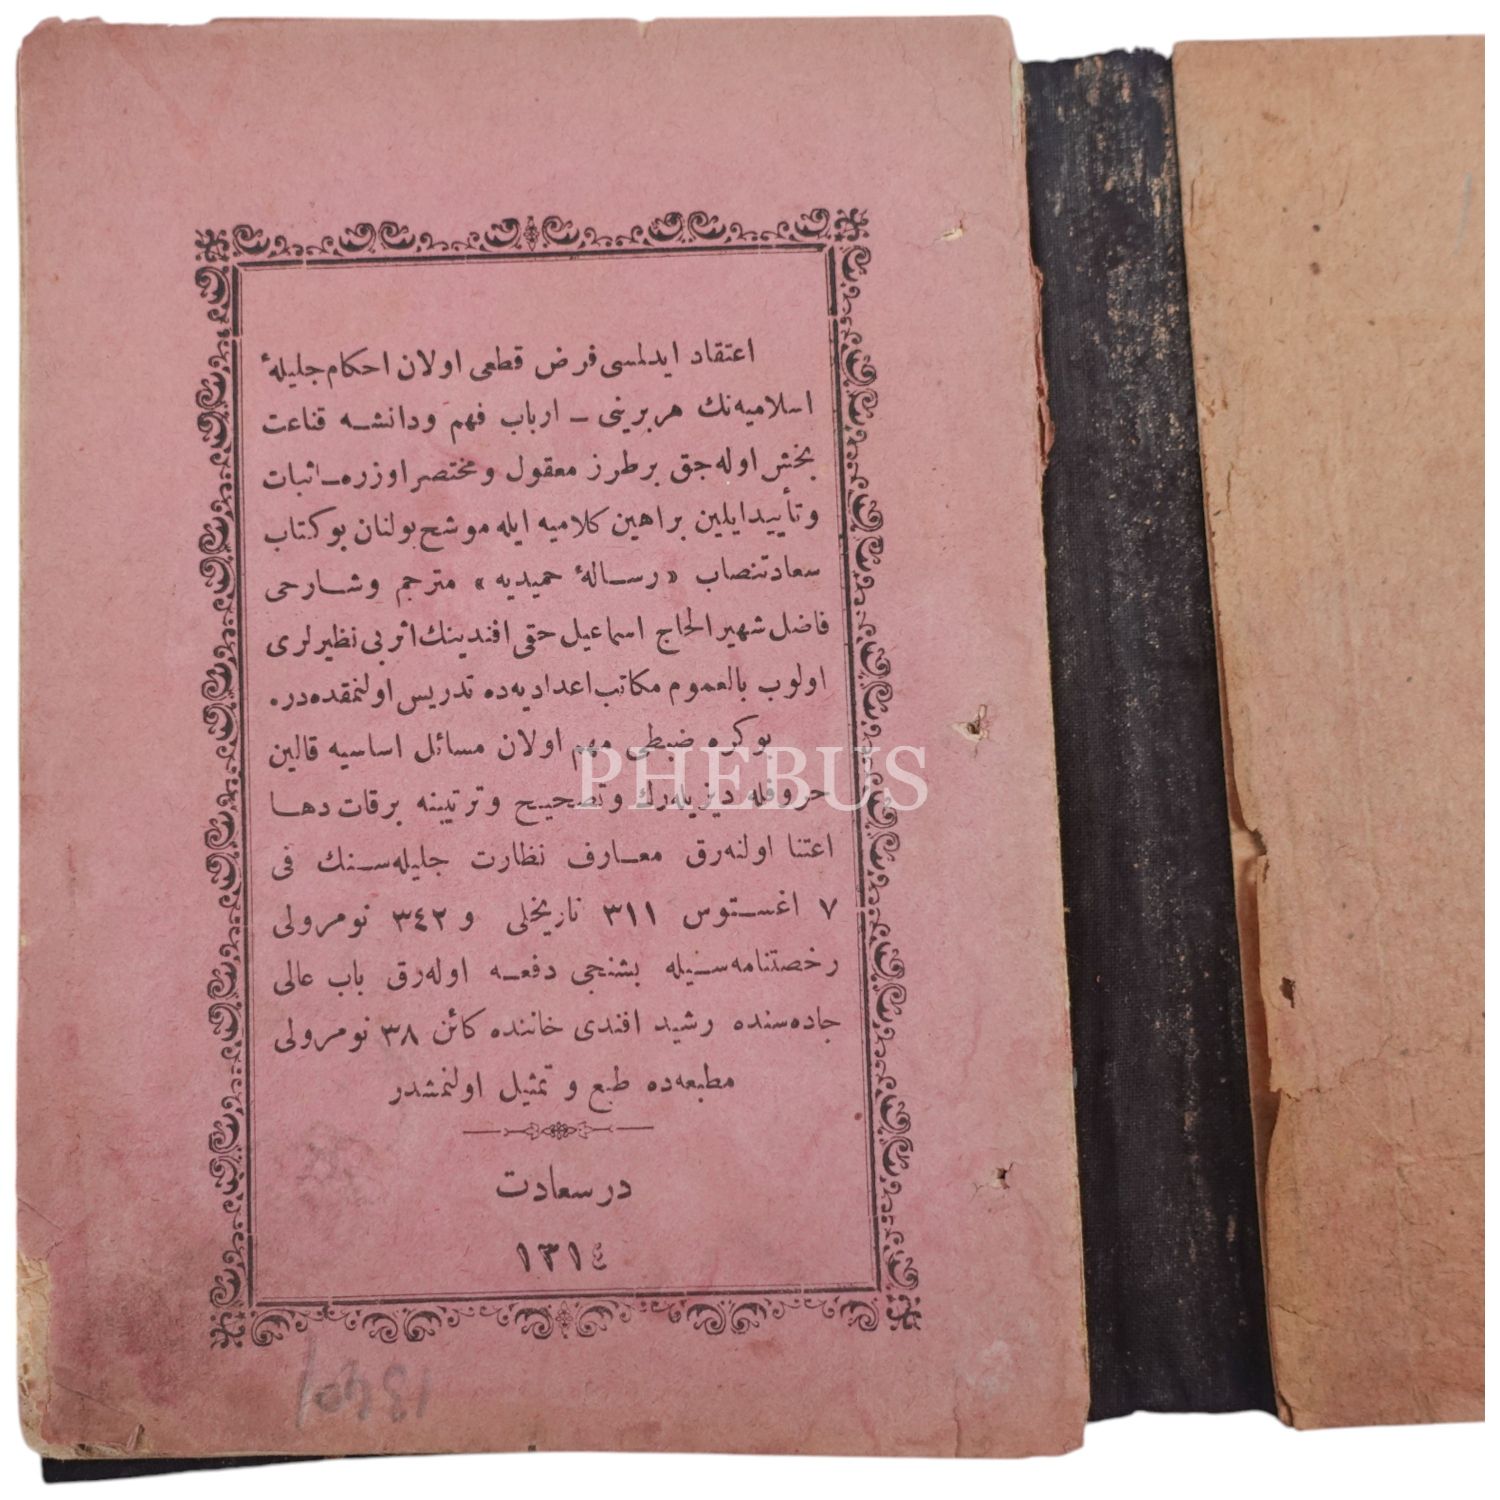 اعتقاد ایدلمسی فرض قطعی اولان احکام جلیلهٔ
اسلامیه‌نك هربرینی ـ ارباب فهم ودانشه قناعت
بخش اوله‌جق برطرز معقول ومختصر اوزره ـ اثبات
وتأیید ایلین براهین کلامیه ایله موشح بولنان بوکتاب
سعادتنصاب «رسالهٔ حمیدیه» مترجم وشارحی
فاضل شهیر الحاج اسماعیل حقی افندینك اثر بی نظیرلری
اولوب بالعموم مکاتب اعدادیه‌ده تدریس اولنمقده‌در.
بوکره ضبطی مهم اولان مسائل اساسیه قالین
حروفله دیزیله‌رك وتصحیح وترتیبنه برقات دها
اعتنا اولنه‌رق معارف نظارت جلیله‌سنك فی
٧ اغستوس ٣١١ تاریخلی و ٣٤٢ نومرولی
رخصتنامه‌سیله بشنجی دفعه اوله‌رق باب عالی
جاده‌سنده رشید افندی خاننده کائن ٣٨ نومرولی
مطبعه‌ده طبع و تمثیل اولنمشدر
درسعادت
١٣١٤
PHEBUS